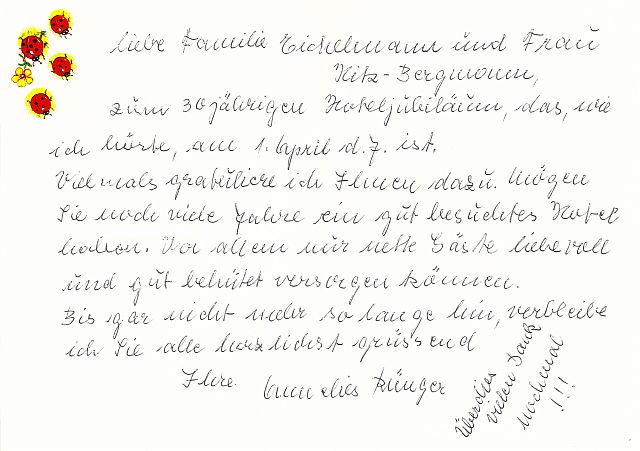 liebe Familie Eickelmann und Frau
Hitz-Bergmann,
zum 30 jährigen Hoteljubiläum, das, wie
ich hörte, am 1. April d. J. ist.
Vielmals gratuliere ich Ihnen dazu. Mögen
Sie noch viele Jahre ein gut besuchtes Hotel
haben. Vor allem nur nette Gäste liebevoll
und gut behütet versorgen können.
Bis gar nicht mehr so lange hin, verbleibe
ich Sie alle herzlichst grüssend
Ihre Annelies Rünger
Überdies
vielen Dank
nochmal
!!!